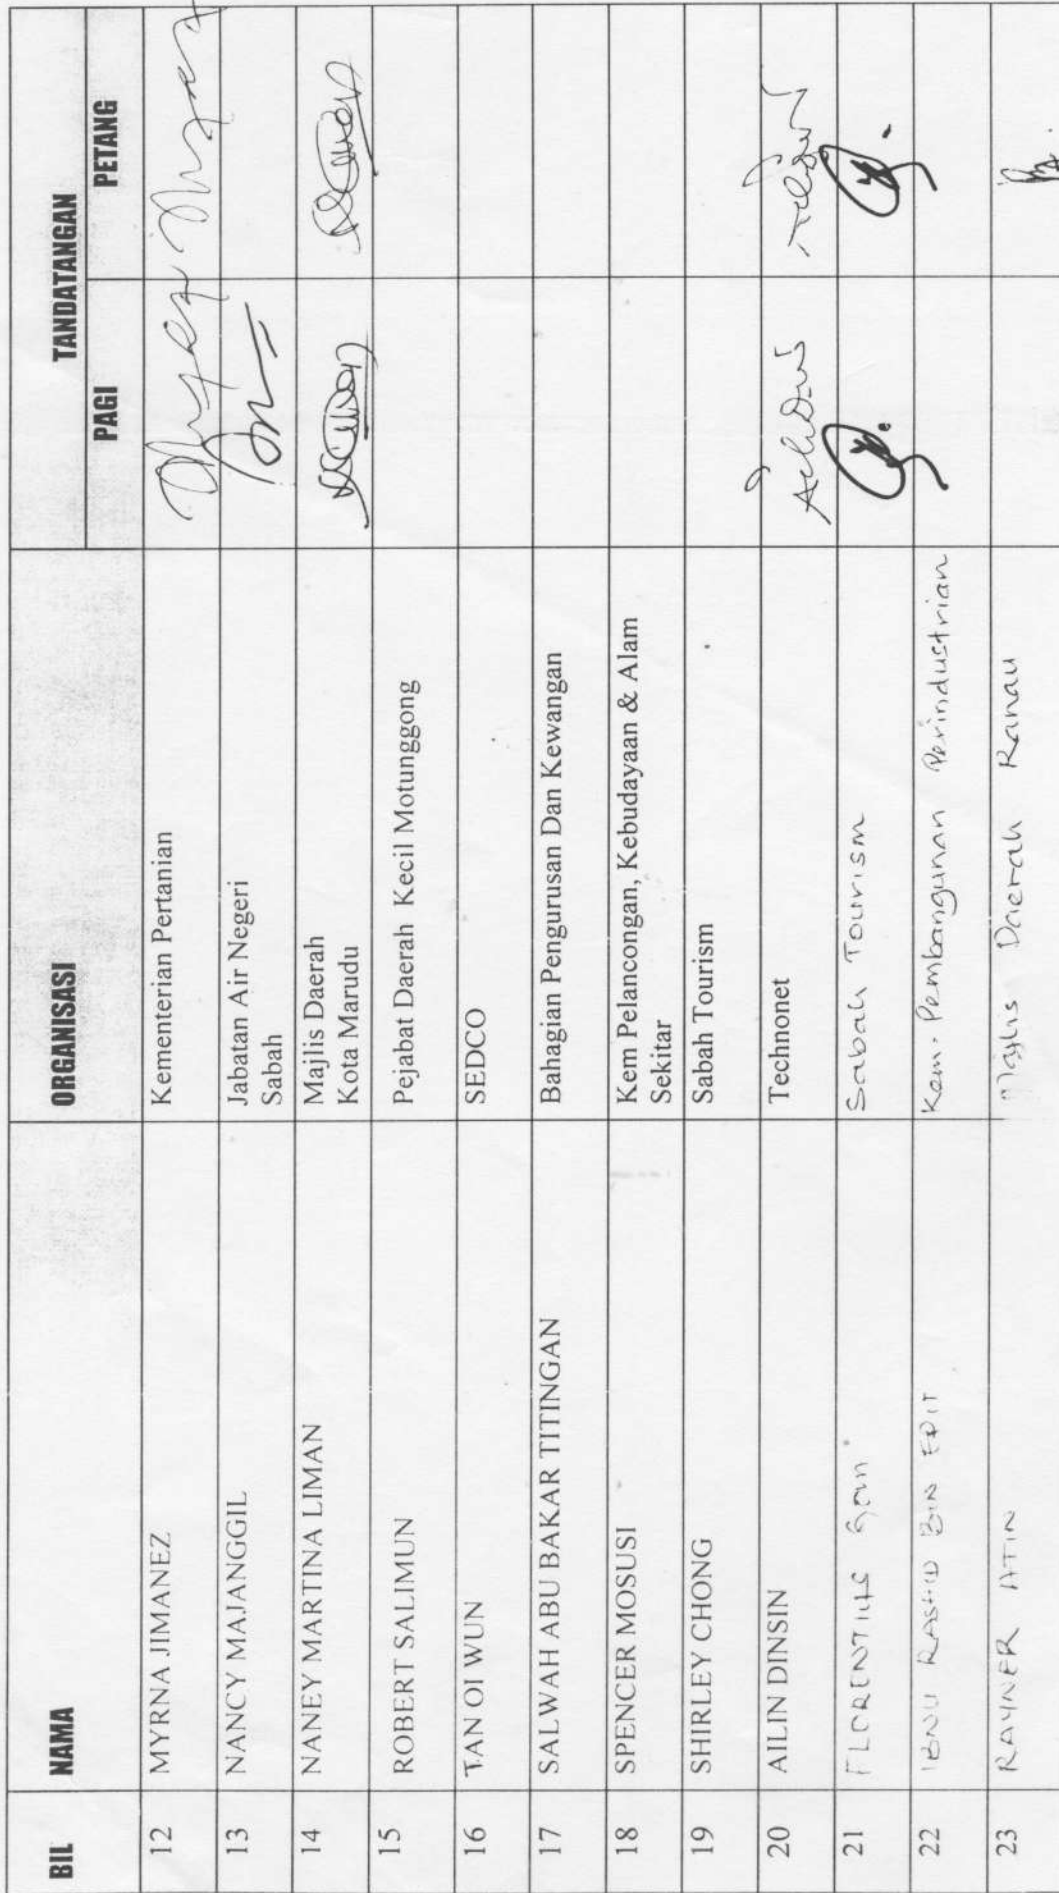 BIL NAMA ORGANISASI TANDATANGAN
PAGI PETANG
12 MYRNA JIMANEZ Kementerian Pertanian
13 NANCY MAJANGGIL Jabatan Air Negeri
Sabah
14 NANEY MARTINA LIMAN Majlis Daerah
Kota Marudu
15 ROBERT SALIMUN Pejabat Daerah Kecil Motunggong
16 TAN OI WUN SEDCO
17 SALWAH ABU BAKAR TITINGAN Bahagian Pengurusan Dan Kewangan
18 SPENCER MOSUSI Kem Pelancongan, Kebudayaan & Alam
Sekitar
19 SHIRLEY CHONG Sabah Tourism
20 AILIN DINSIN Technonet
21 FLORENTIUS Sabah Tourism
22 IBNU RASHID BIN EDIT Kem. Pembangunan Perindustrian
23 RAYNER ATIN Majlis Daerah Ranau